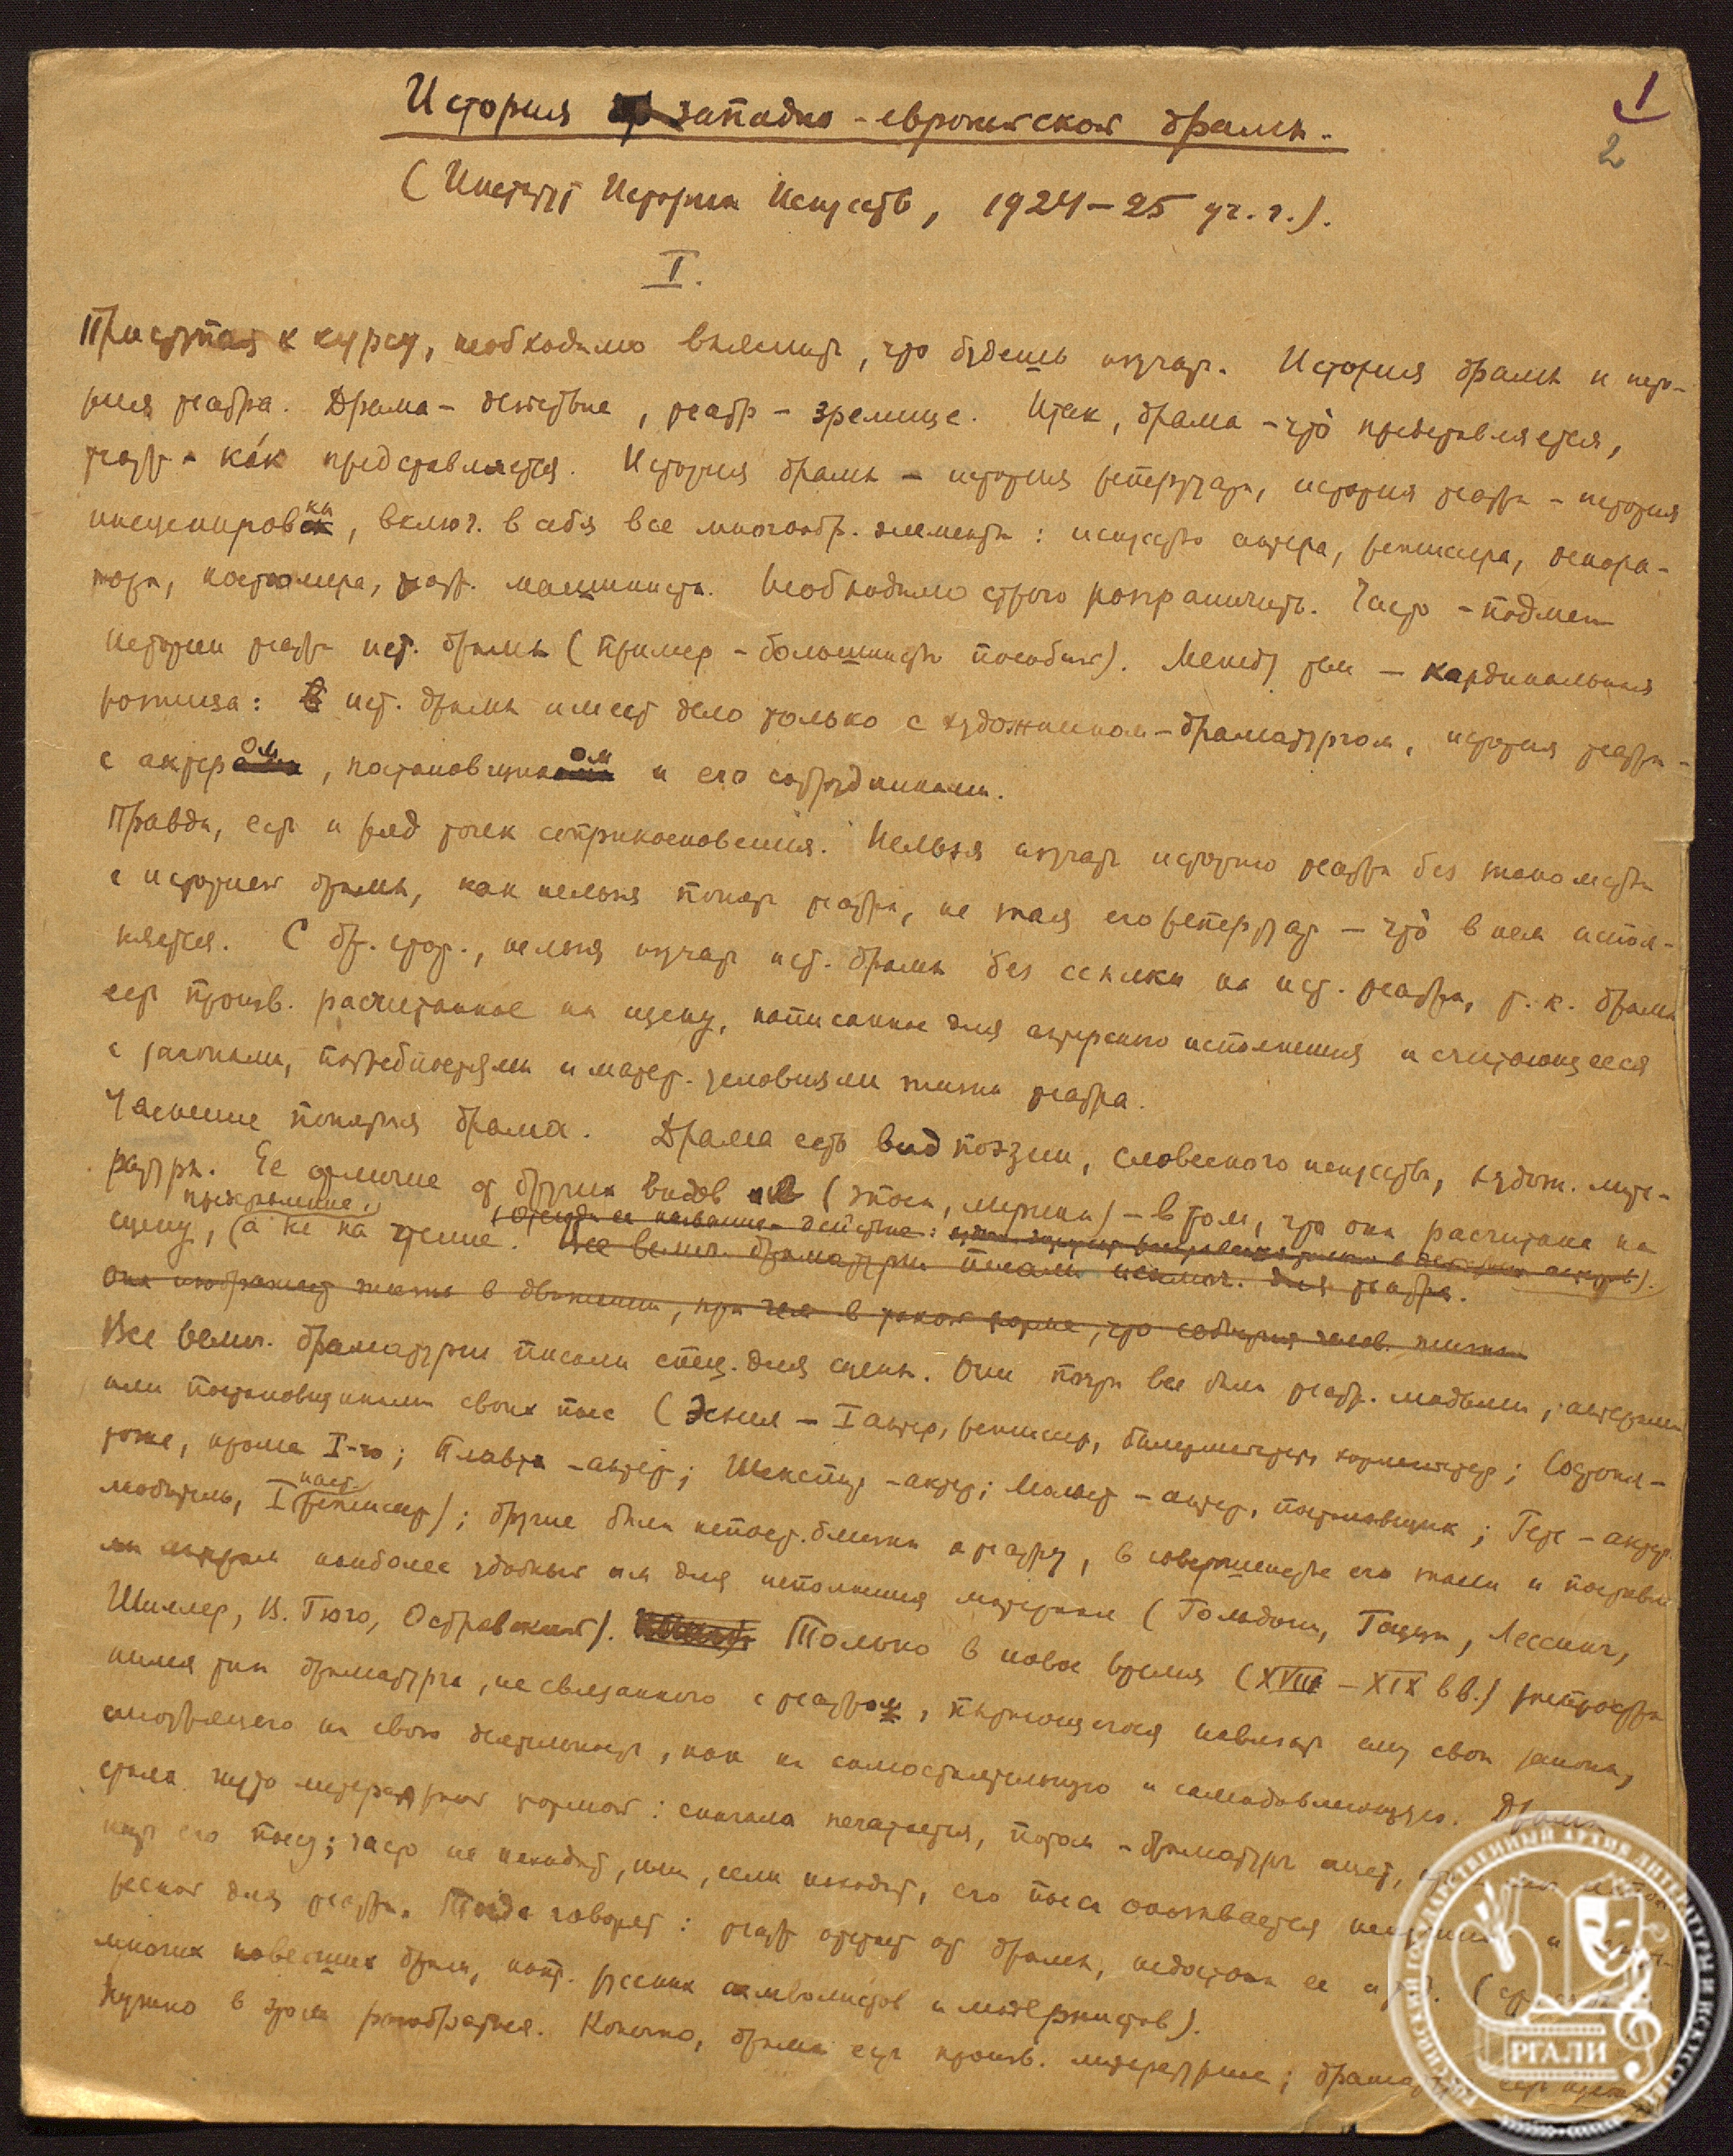 1
2
История западно-европейской драмы.
(Институт Истории Искусств, 1924–25 уч. г.).
I.
Приступая к курсу, необходимо выяснить, что будешь изучать. История драмы и исто-
рия театра. Драма – действие, театр – зрелище. Итак, драма – что̀ представляется,
театр – ка́к представляется. История драмы – история репертуара, история театра – история
инсценировки, включ. в себя все многообр. элементы: искусство актера, режиссера, декора-
тора, костюмера, театр. машиниста. Необходимо строго разграничить. Часто – подмен
истории театра ист. драмы (пример – большинство пособий). Между тем – кардинальная
разница: ист. драмы имеет дело только с художником-драматургом, история театра –
с актером, постановщиком и его сотрудниками.
Правда, есть и ряд точек соприкосновения. Нельзя изучать историю театра без знакомства
с историей драмы, как нельзя понять театра, не зная его репертуар – что̀ в нем испол-
няется. С др. стор., нельзя изучать ист. драмы без ссылки на ист. театра, т. к. драма
есть произв. расчитанное на сцену, написанное для актерского исполнения и считающееся
с законами, потребностями и матер. условиями жизни театра.
Уяснение понятия драма. Драма есть вид поэзии, словесного искусства, худож. лите-
ратуры. Ее отличие от других видов (эпоса, лирики) – в том, что она расчитана на
сцену, (а не на чтение. Отсюда ее название – действие:
Все велич. драматурги писали исключ. для театра.
Она изображает жизнь в движении, при чем в такой форме, что события челов. жизни
Все велич. драматурги писали спец. для сцены. Они почти все были театр. людьми, актерами
или постановщиками своих пьес (Эсхил – I актер, режиссер, балетмейстер, ; Софокл –
тоже, кроме I-го; Плавт – актер; Шекспир – актер; Мольер – актер, постановщик; Гете – актер-
любитель, I режиссер); другие были непоср. близки к театру, в совершенстве его знали и поставля-
ли наиболее удобный им для исполнения материал (Гольдони, Гоцци, Лессинг,
Шиллер, В. Гюго, Островский). Только в новое время (XVIII – XIX в в.)
тип драматурга, не связанного с театром, пытающегося навязать ему свои законы,
смотрящего на свою деятельность, как на самостоятельную и самодовлеющую. Драма
стала чисто литературной формой: сначала печатается, потом – драматург ищет,
его пьесу; часто не находит, или, если находит, его пьеса оказывается
для театра. Тогда говорят: театр отстает от драмы, недостоин ее и т. д.
многих новейших драм, напр. русских символистов и модернистов).
Нужно в этом разобраться. Конечно, драма есть произв. литературное;
РГАЛИ